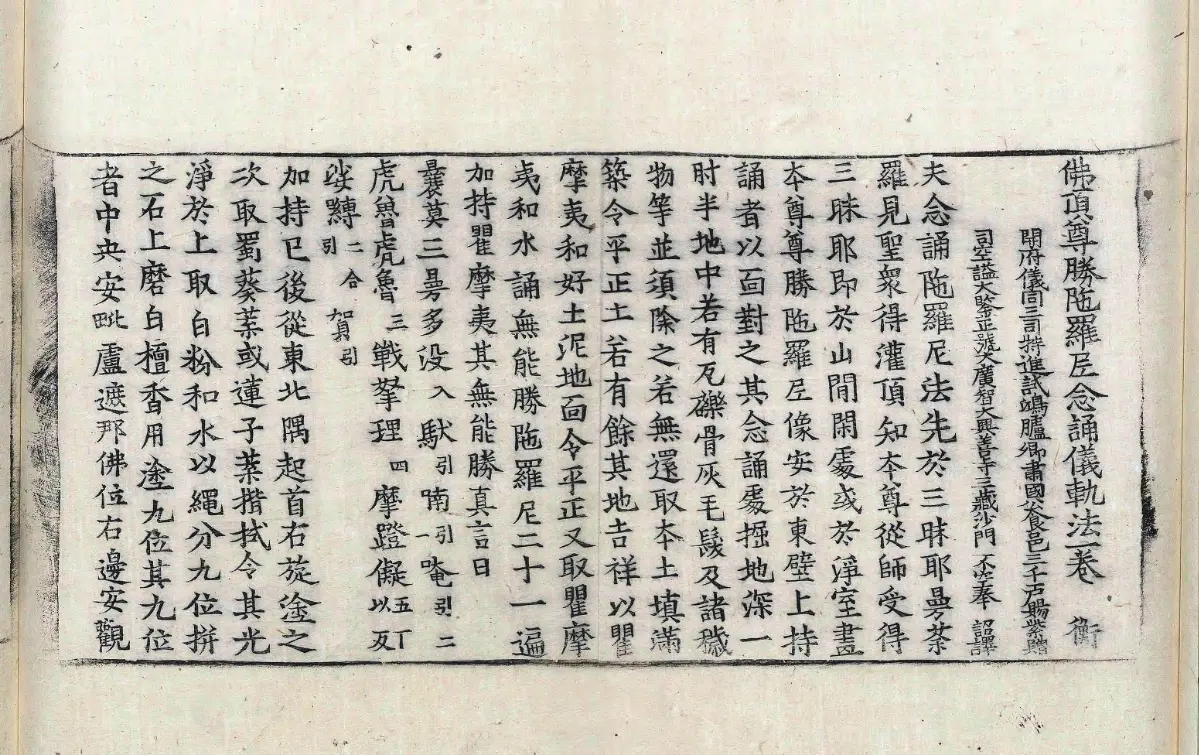 佛頂尊勝陁羅尼念誦儀軌法一卷 衡
開府儀同三司特進試鴻臚卿肅國公食邑三千戶賜紫贈
司空謚大鑒正號大廣智大興善寺三藏沙門 不空奉 詔譯
夫念誦陁羅尼法先於三昧耶曼荼
羅見聖衆得灌頂知本尊從師受得
三昧耶即於山閒閑處或於淨室畫
本尊尊勝陁羅尼像安於東壁上持
誦者以面對之其念誦處掘地深一
肘半地中若有瓦礫骨灰毛髮及諸穢
物等並須除之若無還取本土填滿
築令平正土若有餘其地吉祥以瞿
摩夷和好土泥地面令平正又取瞿摩
夷和水誦無能勝陁羅尼二十一遍
加持瞿摩夷其無能勝真言曰
曩莫三曼多没入馱引喃引一唵引二
虎魯虎魯三戰拏理四摩蹬儗五丁以反
娑嚩二合引賀引
加持已後從東北隅起首右旋塗之
次取蜀葵葉或蓮子葉揩拭令其光
淨於上取白粉和水以繩分九位拼
之石上磨白檀香用塗九位其九位
者中央安毗盧遮那佛位右邊安觀